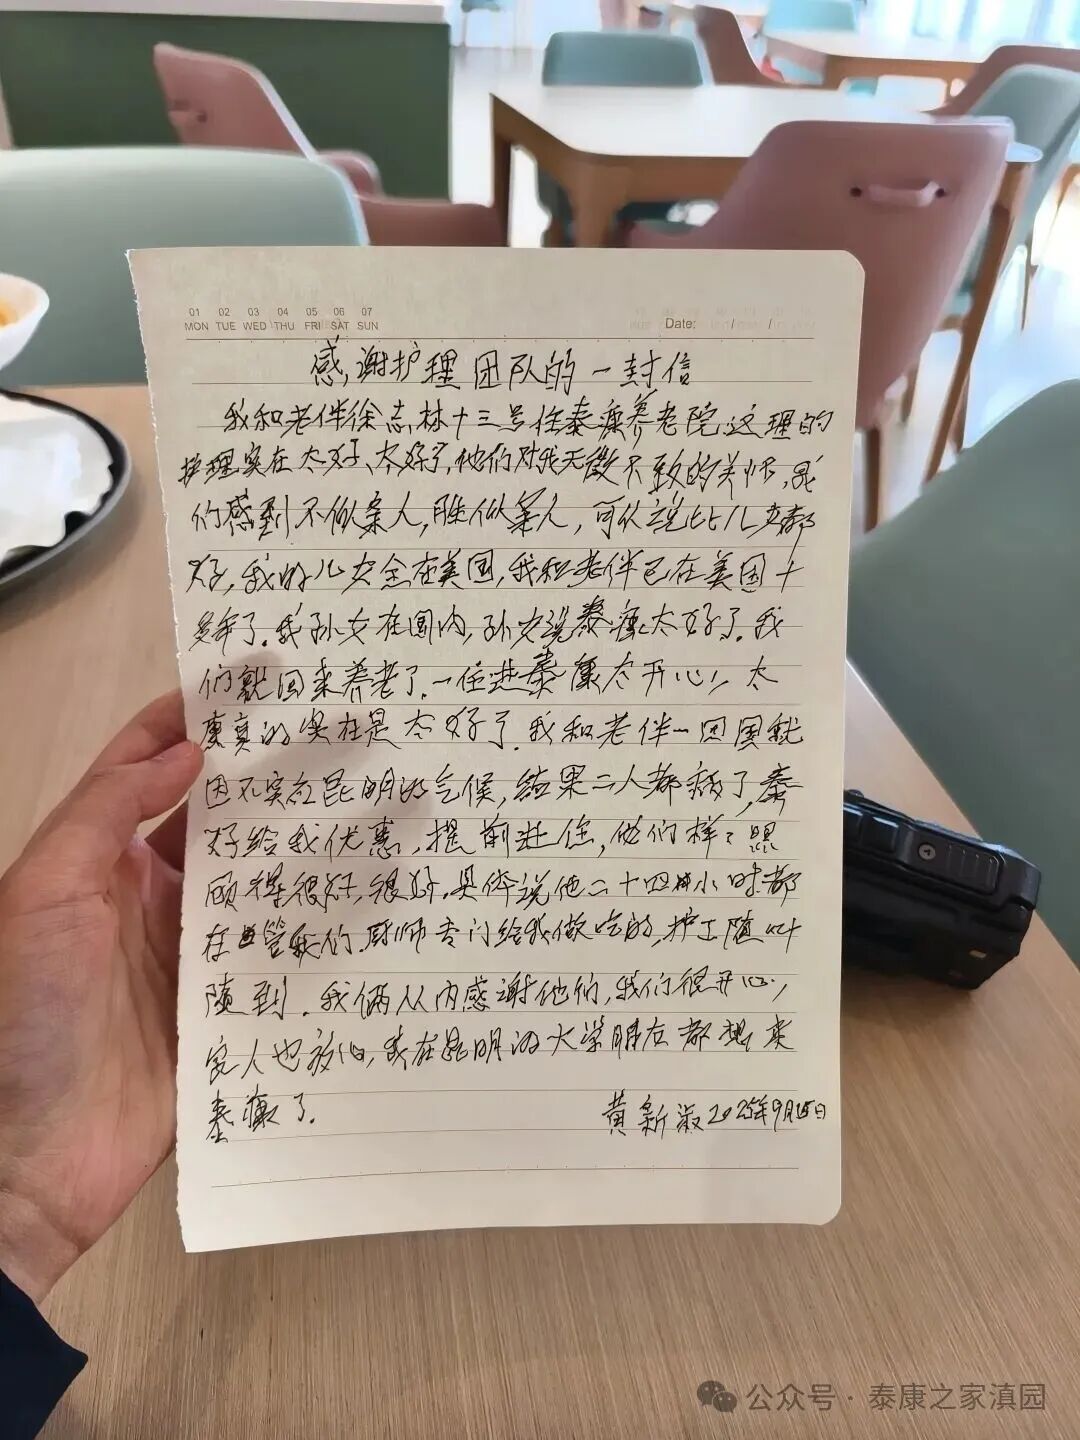 01 02 03 04 05 06 07
MON TUE WED THU FRI SAT SUN
Date: / /
感谢护理团队的一封信
我和老伴徐志林十三号住泰康养老院,这理的
护理实在太好、太好了,他们对我无微不致的关怀,我
们感到不似亲人,胜似亲人,可以说比儿女都
好,我的儿女全在美国,我和老伴已在美国十
多年了.我孙女在国内,孙女说泰康太好了.我
们就回来养老了.一住进泰康太开心,太
康真的实在是太好了.我和老伴一回国就
因不实应昆明的气候,结果二人都病了,泰
好给我优惠,提前进住,他们样样照
顾得很好,很好.具体说他二十四小时都
在管我们.厨师专门给我做吃的,护工随叫
随到.我俩从内感谢他们,我们很开心,
家人也放心,我在昆明的大学朋友都想来
泰康了.
黄新淑2025年9月15日
公众号·泰康之家滇园